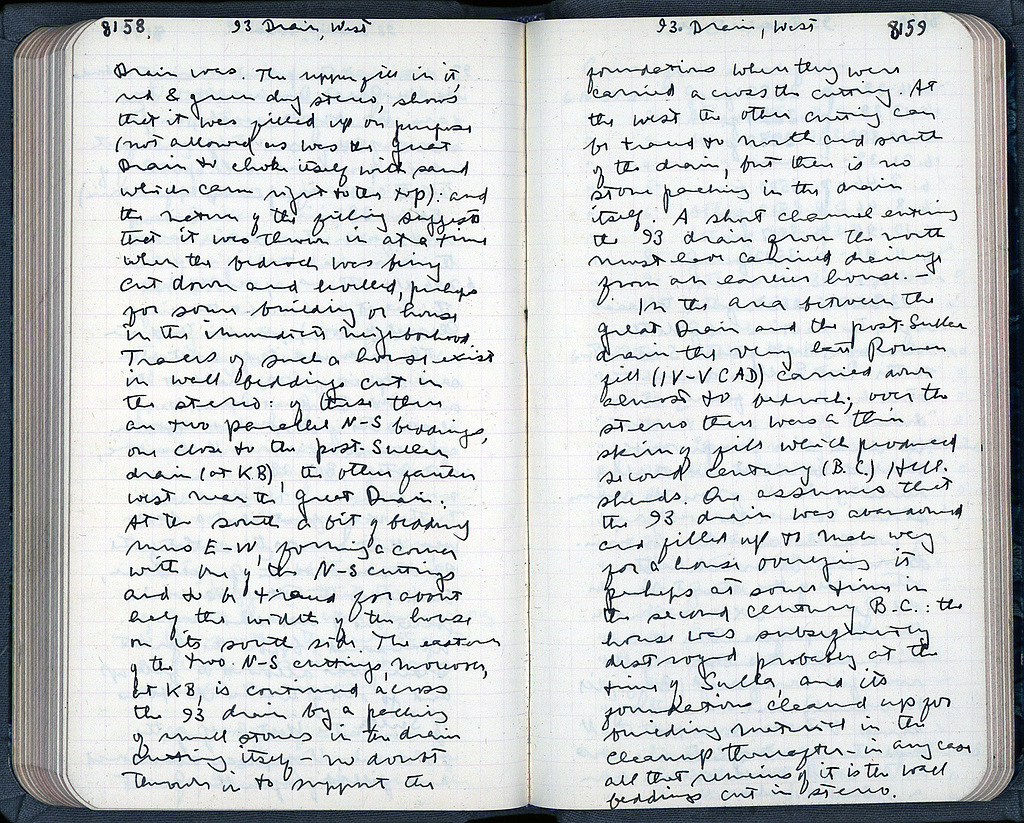 8158
93 Drain, West
Drain was. The upper fill in it,
red & green dug stereo, shows
that it was filled up on purpose
(not allowed as was the Great
Drain to choke itself with sand
which came right to the top): and
the nature of the filling suggests
that it was thrown in at a time
when the bedrock was being
cut down and levelled, perhaps
for some building or house
in the immediate neighborhood.
Traces of such a house exist
in wall beddings cut in
the stereo: of these there
are two parallel N-S beddings,
one close to the post-Sullan
drain (at KB), the other farther
west near the Great Drain.
At the south a bit of bedding
runs E-W, forming a corner
with one of the N-S cuttings
and to be traced for about
half the width of the house
on its south side. The eastern
of the two N-S cuttings, moreover,
at KB, is continued across
the 93 drain by a packing
of small stones in the drain
cutting itself – no doubt
thrown in to support the
93. Drain, West
8159
foundations when they were
carried across the cutting. At
the west the other cutting can
be traced to north and south
of the drain, but there is no
stone packing in the drain
itself. A short channel entering
the 93 drain from the north
must have carried drainage
from an earlier house. –
In the area between the
Great Drain and the post-Sullan
drain the very late Roman
fill (IV-V C AD) carried down
almost to bedrock; over the
stereo there was a thin
skin of fill which produced
second century (B.C.) Hell.
sherds. One assumes that
the 93 drain was abandoned
and filled up to make way
for a house overlying it
perhaps at some time in
the second century B.C.: the
house was subsequently
destroyed probably at the
time of Sulla, and its
foundations cleaned up for
building material in the
cleanup thereafter – in any case
all that remains of it is the wall
beddings cut in stereo.